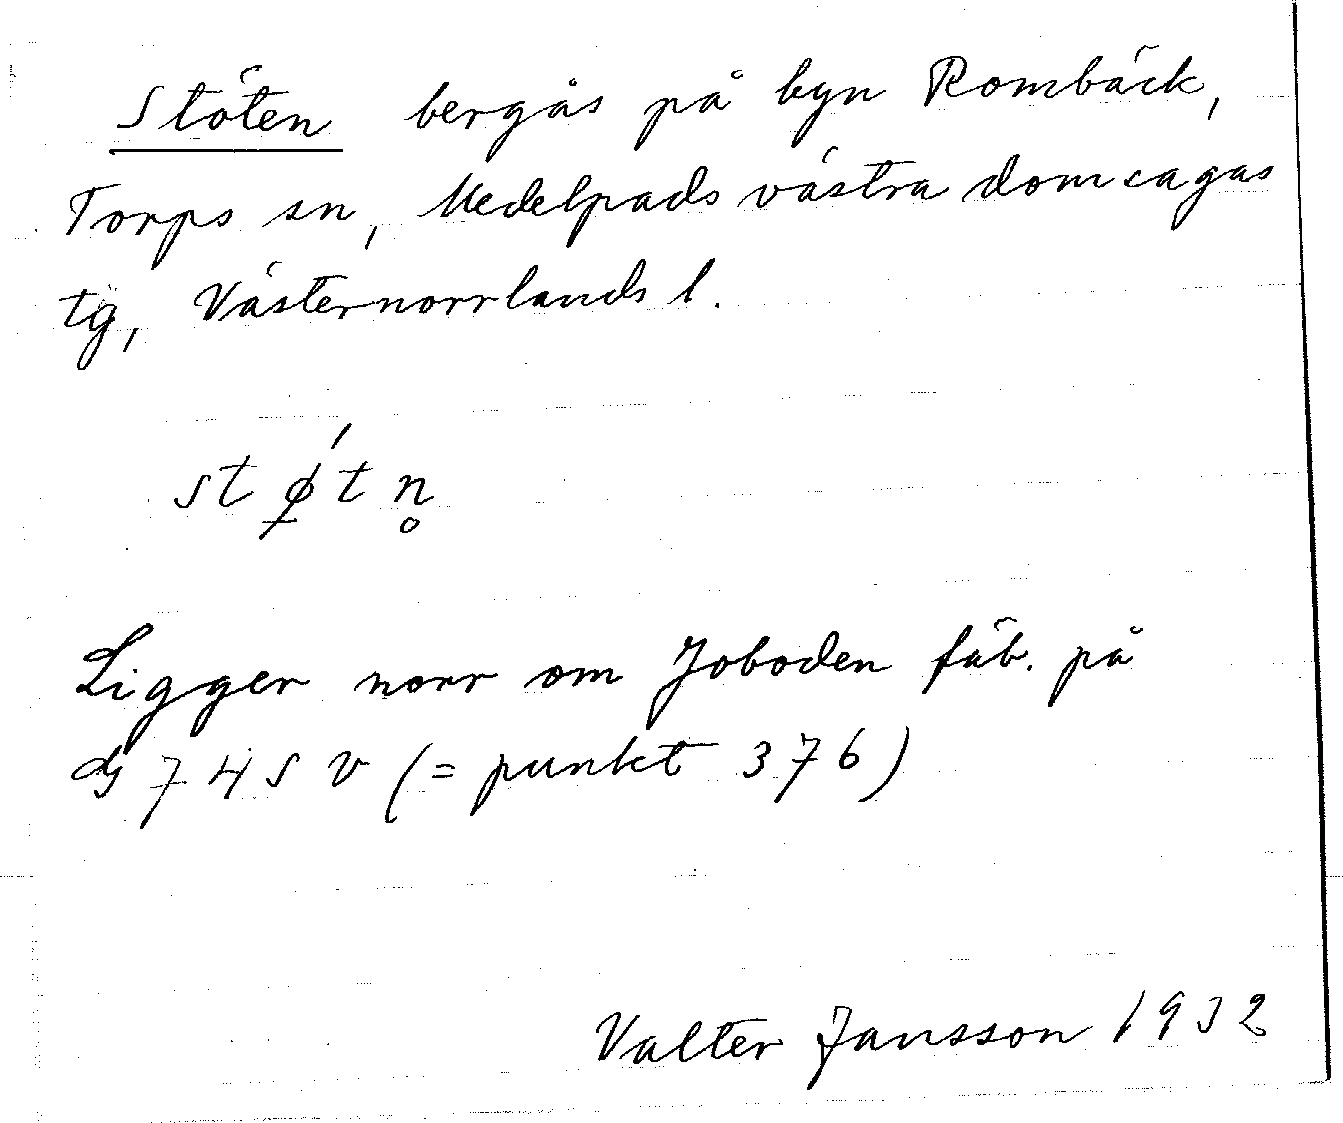 Stöten bergås på byn Rombäck,
Torps sn, Medelpads västra domsagas
tg, Västernorrlands l.
stǿ̱tn̥
Ligger norr om Joboden fäb. på
74 SV (= punkt 376)
Valter Jansson 1932